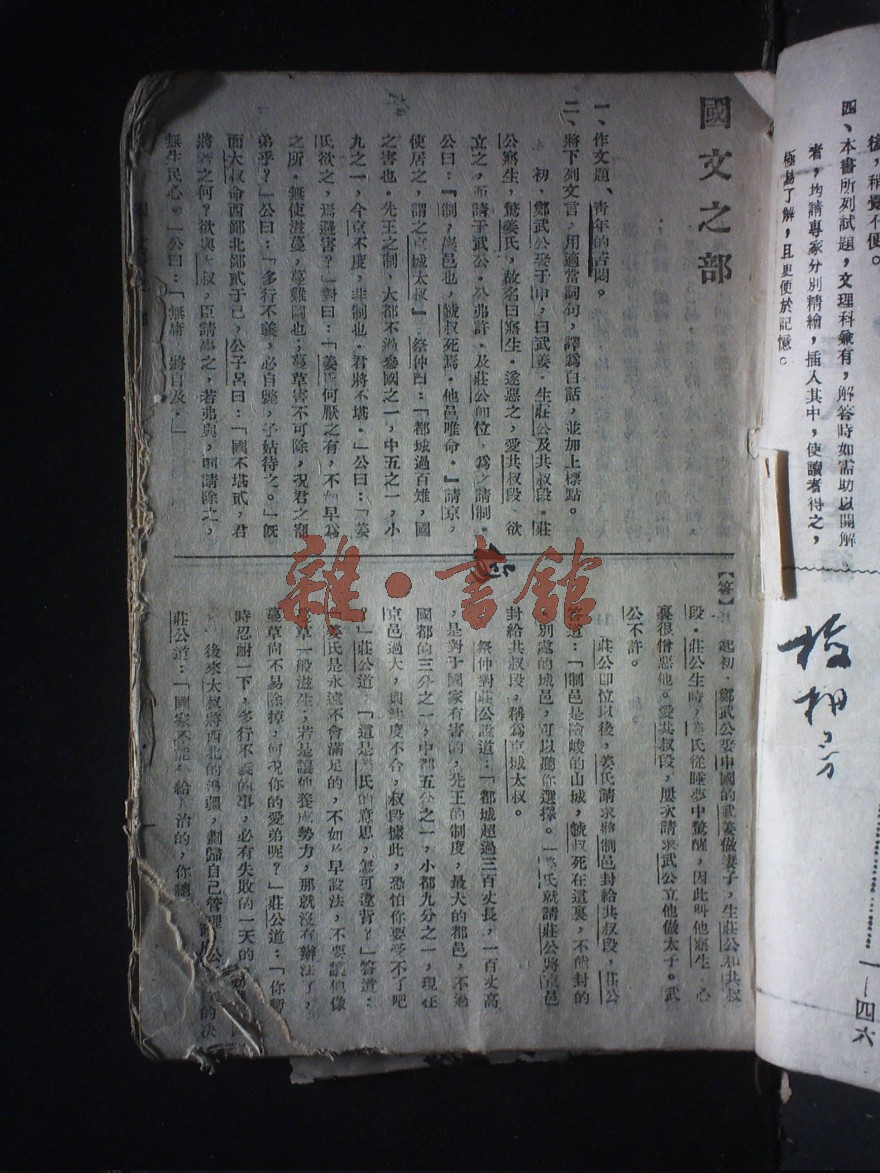 後，稍覺不便。
四、本書所列試題，文理科兼有，解答時如需助以開解
者，均請專家分別精繪，插入其中，使讀者得之，
極易了解，且更便於記憶。
一—四六
國文之部
一、作文題、青年的苦悶。
二、將下列文言，用適當詞句，譯爲白話，並加上標點。
初，鄭武公娶于申，曰武姜。生莊公及共叔段。莊
公寤生，驚姜氏，故名曰寤生。遂惡之，愛共叔段，欲
立之，亟請于武公。公弗許。及莊公卽位，爲之請制。
公曰：「制，巖邑也，虢叔死焉。他邑唯命。」請京，
使居之，謂之京城太叔』祭仲曰：「都城過百雉，國
之害也。先王之制，大都不過參國之一，中五之一，小
九之一，今京不度，非制也。君將不堪。」公曰：「姜
氏欲之，焉避害？」對曰：「姜氏何厭之有，不如早爲
之所。無使滋蔓，蔓難圖也；蔓草害不可除，況君之寵
弟乎？」公曰：「多行不義，必自斃，子姑待之。」旣
而大叔命西鄙北鄙貳于己，公子呂曰：「國不堪貳，君
將若之何？欲與大叔，臣請事之，若弗與，則請除之，
無生民心。」公曰：「無庸，將自及。」
【答】 起初，鄭武公娶申國的武姜做妻子，生莊公和共叔
段。莊公生時，姜氏從睡夢中驚醒，因此叫他寤生，心
裏很憎惡他。愛共叔段，屢次請求武公立他做太子。武
公不許。
莊公卽位以後，姜氏請求將制邑封給共叔段，莊公
答道：「制邑是險峻的山城，虢叔死在這裏，不能封的
別處的城邑，可以聽你選擇。」姜氏就請莊公將京邑
封給共叔段，稱爲京城太叔。
祭仲對莊公說道：「都城超過三百丈長，一百丈高
，是對于國家有害的，先王的制度，最大的都邑，不過
國都的三分之一，中都五分之一，小都九分之一，現在
京邑過大，與法度不合，叔段據此，恐怕你要受不了吧
？」莊公道：「這是姜氏的意思，怎可違背？」答道：
「姜氏是永遠不會滿足的，不如及早設法，不要讓他像
草一般滋生；若是讓他養成勢力，那就沒有辦法了，
蔓草尚不易除掉，何況你的愛弟呢？」莊公道：「你暫
時忍耐一下，多行不義的事，必有失敗的一天的
後來太叔將西北的邊疆，劃歸自己管理
莊公道：「國家不能 給 治的，你總 的決
雜·書館